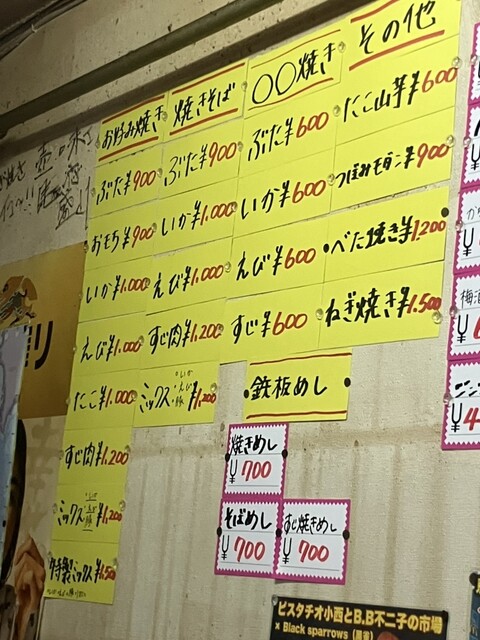 お好み焼き
ぶた¥900
おもち¥900
いか¥1.000
えび¥1.000
たこ¥1.000
すじ肉¥1,200
ミックス ¥1,200
特製ミックス¥1.500
焼きそば
ぶた¥900
いか¥1,000
えび¥1,000
すじ肉¥1,200
ミックス・いか・えび・豚 ¥1,200
〇〇焼き
ぶた¥600
いか¥600
えび¥600
すじ¥600
その他
たこ山芋¥600
つぼみモダン¥900
べた焼き¥1.200
ねぎ焼き¥1.500
鉄板めし
焼きめし
¥700
そばめし
¥700
すじ焼きめし
¥700
梅酒
ピスタチオ小西とB.B不二子の市場
× Black sparrows